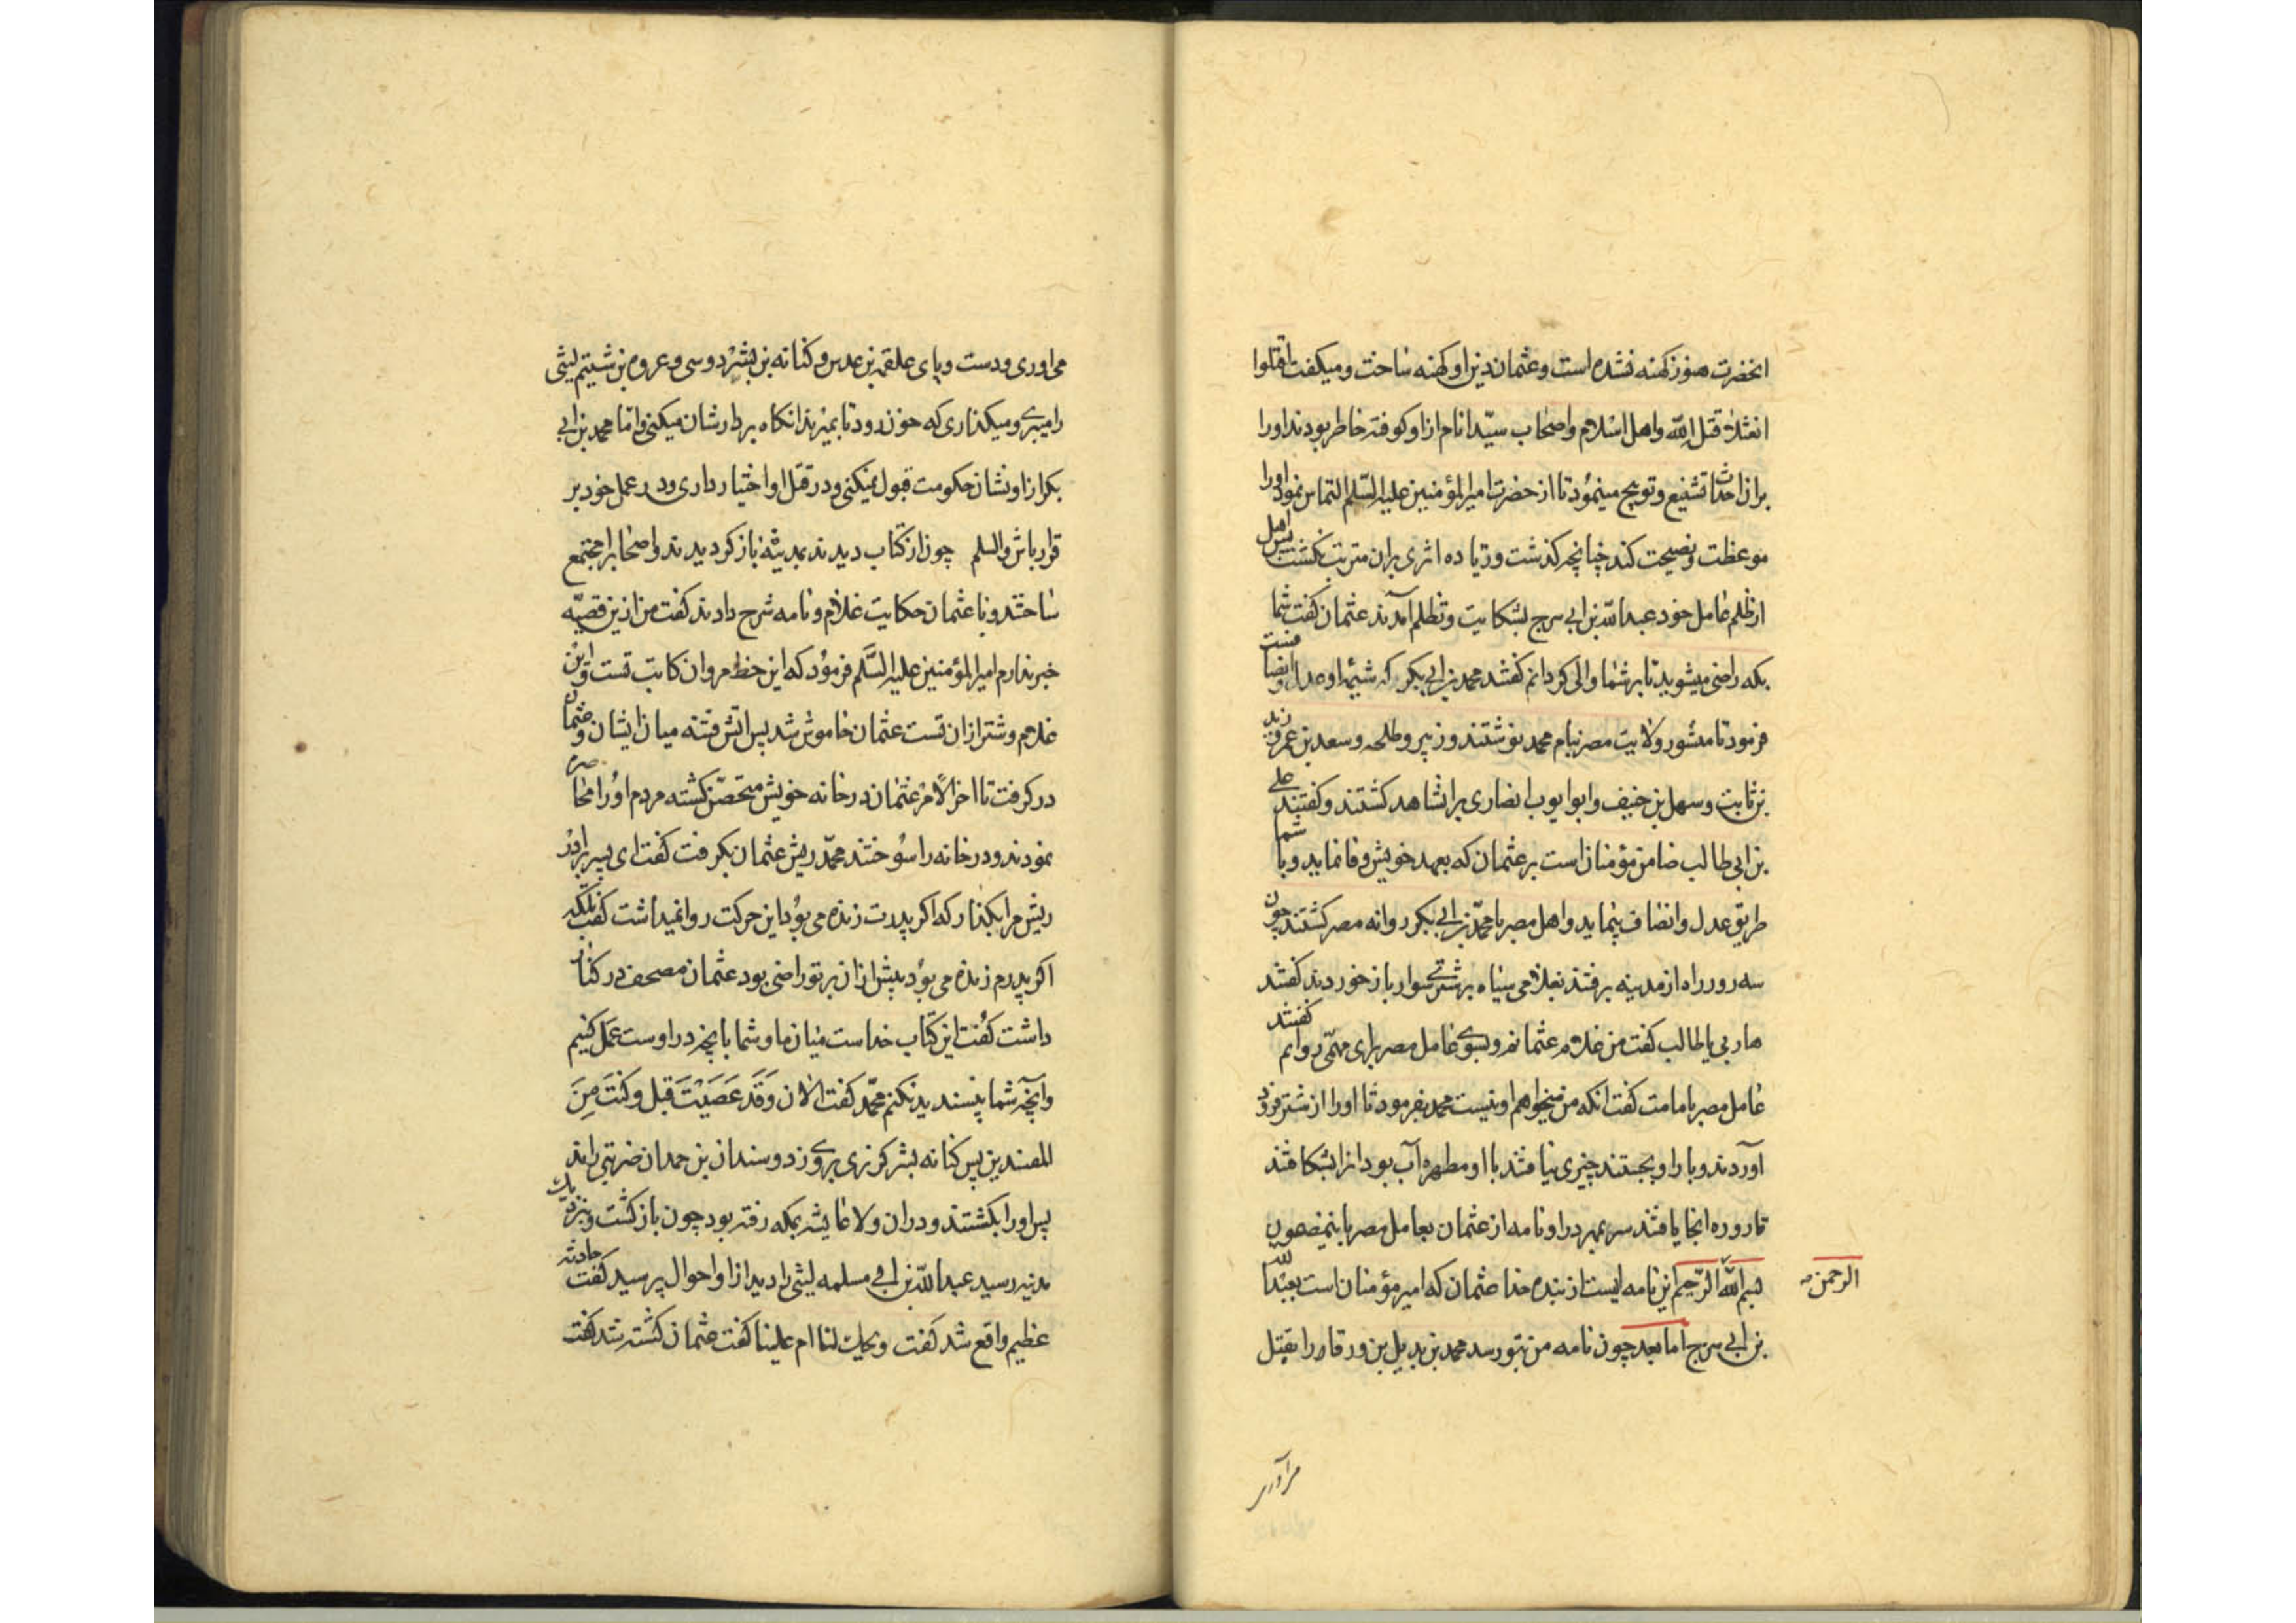 انحضرت هنوز کهنه نشده است و عثمان دین او کهنه ساخت و میکفت اقتلوا
انعثلاث قتل الله و اهل اسلام و اصحاب سیّد انام از او کوفته خاطر بودند او را
بران احداث تشنیع و توبیخ مینمود تا از حضرت امیرالمؤمنین علیه السّلم التماس نمود او را
موعظت و نصیحت کند چنانچه کذشت و زیاده اثری بران مترتب نکشت پس اهل
از ظلم عامل خود عبدالله بن ابی سرح بشکایت و تظلم آمدند عثمان کفت شما
بکه راضی میشوید تا بر شما والی کردانم کفتند محمد بن ابی بکر که شیمۀ او عدل و انصافست
فرمود تا منشور ولایت مصر بنام محمد نوشتند و زبیر و طلحه و سعد بن عمر و زید
بن ثابت و سهل بن حنیف و ابو ایوب انصاری بر انشاهد کشتند و کفتند علی
بن ابی طالب ضامن مؤمنانست بر عثمان که بعهد خویش وفا نماید و با شما
طریق عدل و انصاف پنماید و اهل مصر با محمّد بن ابی بکر روانه مصر کشتند چون
سه روز راه از مدینه برفتند بغلامی سیاه بر شتری سوار باز خوردند کفتند
هاربی یا طالب کفت من غلام عثمانم و بسوی عامل مصر برای مهمّی روانم کفتند
عامل مصر با ماست کفت انکه من میخواهم او نیست محمد بفرمود تا او را از شتر فرود
آوردند و بار او بجستند چیزی نیافتند با او مطهره آب بود انرا بشکافتند
قاروره انجا یافتند سر بمهر در او نامه از عثمان بعامل مصر باینمضمون
بسم الله الرّحیم این نامه ایست از بنده خدا عثمان که امیر مؤمنان است بعبد الله
الرحمن صـ
بن ابی سرح اما بعد چون نامه من بتو رسد محمد بن بدیل بن ورقا را بقتل
می اوری و دست و پای علقمه بن عدیس و کنانه بن بشر دوسی و عروه بن شییم لیثی
را میبری و میکذاری که خون رود تا بمیرند انکاه بر دارشان میکنی و اما محمد بن ابی
بکر از او نشان حکومت قبول نمیکنی و در قتل او اختیار داری و در عمل خود بر
قرار باش والسلم چون از کتاب دیدند بمدینه باز کردیدند و اصحاب را مجتمع
ساختند و با عثمان حکایت غلام و نامه شرح دادند کفت من ازین قصیّه
خبر ندارم امیر المؤمنین علیه السّلم فرمود که این خط مروان کاتب تست و این
غلام و شتر ازان تست عثمان خاموش شد پس اتش فتنه میان ایشان و عثمان
درکرفت تا اخر الامر عثمان در خانه خویش متحصّن کشته مردم او را محاصره
نمودند و در خانه را سوختند محمّد ریش عثمان بکرفت کفت ای پسر برادر
ریش مرا بکذار که اکر پدرت زنده می بود این حرکت روا نمیداشت کفت بلکه
اکر پدرم زنده می بود بیش ازان بر تو راضی بود عثمان مصحف در کنار
داشت کفت این کتاب خداست میان ما و شما با بچه در اوست عمل کنیم
و آنچه شما نپسندید نکنم محمّد کفت الان وَقَد عَصَیْتَ قبل و کنتَ مِنَ
المفسدین پس کنانه بشر کرزی بر وی زد و سندان بن حمدان ضربتی راند
پس او را بکشتند و دران ولا عایشه بمکه رفته بود چون باز کشت و بنزدیک
مدینه رسید عبدالله بن ابی مسلمه لیثی را دید از او احوال پرسید کفت حادثه
عظیم واقع شد کفت ویحک لنا ام علینا کفت عثمان کشته شد کفت